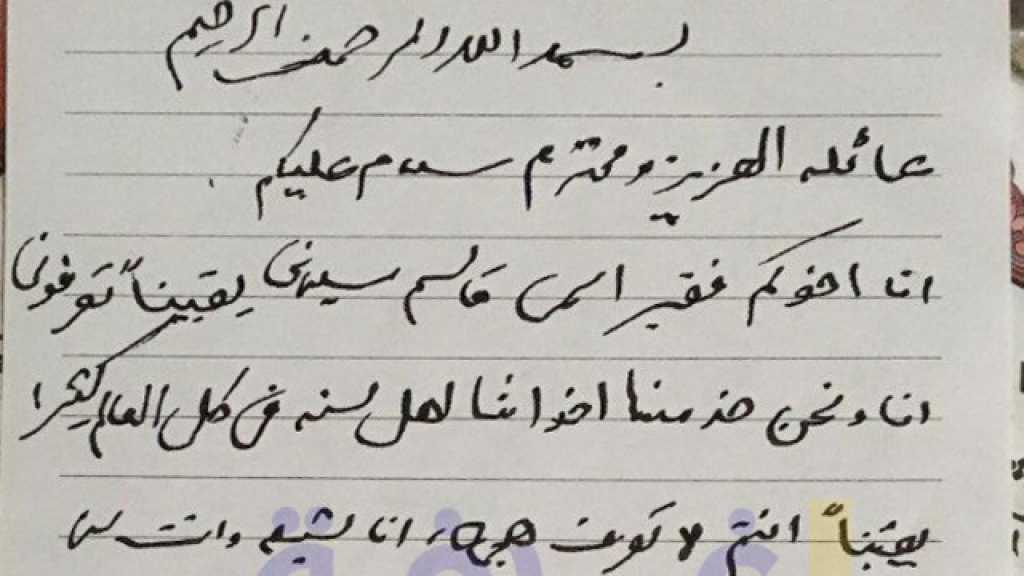 بسم الله الرحمن الرحيم
عائله العزيز ومحترم سلام عليكم
انا اخوكم فقير اسمى قاسم سليمانى يقيناً تعرفونى
انا ونحن خدمنا اخواننا لهل سنه فى كل العالم كثيرا
يقيناً انتم لا انا شيعى وانت سنى